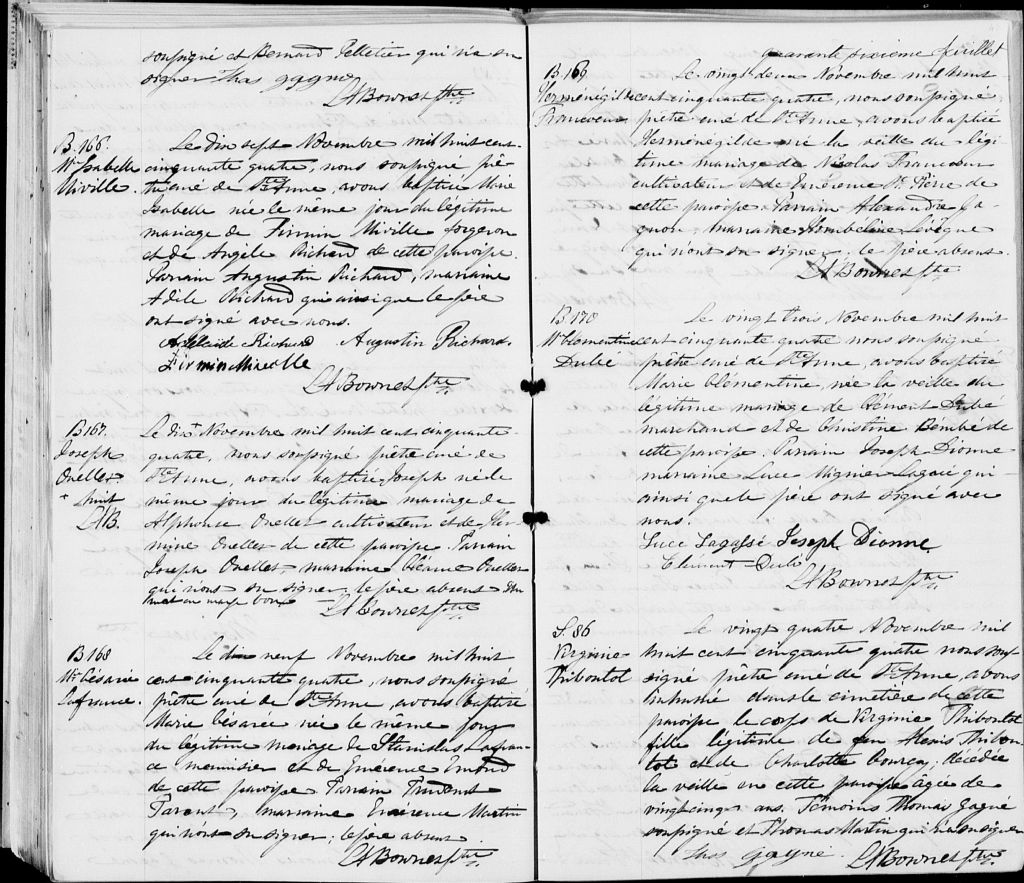 soussigné et Bernard Pelletier qui n'a su
signer Thos gagne
LABourret ptre
B. 166.
Me Isabelle
Miville.
Le dix sept Novembre mil huit cent-
cinquante quatre, nous soussigné prê-
tre curé de Ste Anne, avons baptisé Marie
Isabelle née le même jour du légitime
mariage de Firmin Miville forgeron
et de Angèle Richard de cette paroisse.
Parrain Augustin Richard, marraine
Adèle Richard qui ainsi que le père
ont signé avec nous.
Adelaide Richard Augustin Richard.
Firmin Miville
LABourret ptre
B 167.
Joseph
Ouellet
+ huit
LAB.
Le dix + Novembre mil huit cent cinquante-
quatre, nous soussigné prêtre curé de
Ste Anne, avons baptisé Joseph né le
même jour du légitime mariage de
Alphonse Ouellet cultivateur et de Her-
mine Ouellet de cette paroisse Parrain
Joseph Ouellet marraine Ouellet
qui n'ont su signer, le père absent
en marge bon LABourret ptre
B 168
Me Césarie
Lafrance.
Le dix neuf Novembre mil huit
cent cinquante quatre, nous soussigné
prêtre curé de Ste Anne, avons baptisé
Marie Césarée née le même jour
du légitime mariage de Stanislas Lafran-
ce menuisier et de Emérence Emond
de cette paroisse Parrain Prudent
Parent, marraine Emérence Martin
qui n'ont su signer; le père absent
LABourret ptre
quarante sixieme feuillet
B. 169
Herménégilde
Francoeur
Le vingt deux Novembre mil huit
cent cinquante quatre, nous soussigné
prêtre curé de Ste Anne, avons baptisé
Herménégilde né la veille du légi-
time mariage de Nicolas Francoeur
cultivateur et de Emérence St Pierre de
cette paroisse Parrain Alexandre Ga-
gnon, marraine Hombeline Lévêque
qui n'ont su signer, le père absent.
LABourret ptre
B 170
Me Clementine
Dubé
Le vingt trois Novembre mil huit
cent cinquante quatre nous soussigné
prêtre curé de Ste Anne, avons baptisé
Marie Clémentine, née la veille du
légitime mariage de Clément Dubé
marchand et de Christine Bombé de
cette paroisse. Parrain Joseph Dionne
marraine Luce Mignier Lagacé qui
ainsi que le père ont signé avec
nous.
Luce Lagassé Joseph Dionne
Clement Dubé
LABourret ptre
S. 86
Virginie
Thiboutot
Le vingt quatre Novembre mil
huit cent cinquante quatre nous sous-
signé prêtre curé de Ste Anne, avons
inhumé dans le cimetière de cette
paroisse le corps de Virginie Thiboutot
fille légitime de feu Alexis Thibou-
tot et de Charlotte Bourcy; décédée
la veille en cette paroisse âgée de
vingt cinq ans. Témoins Thomas Gagné
soussigné et Thomas Martin qui n'a su signer
Thos gagné. LABourret ptre